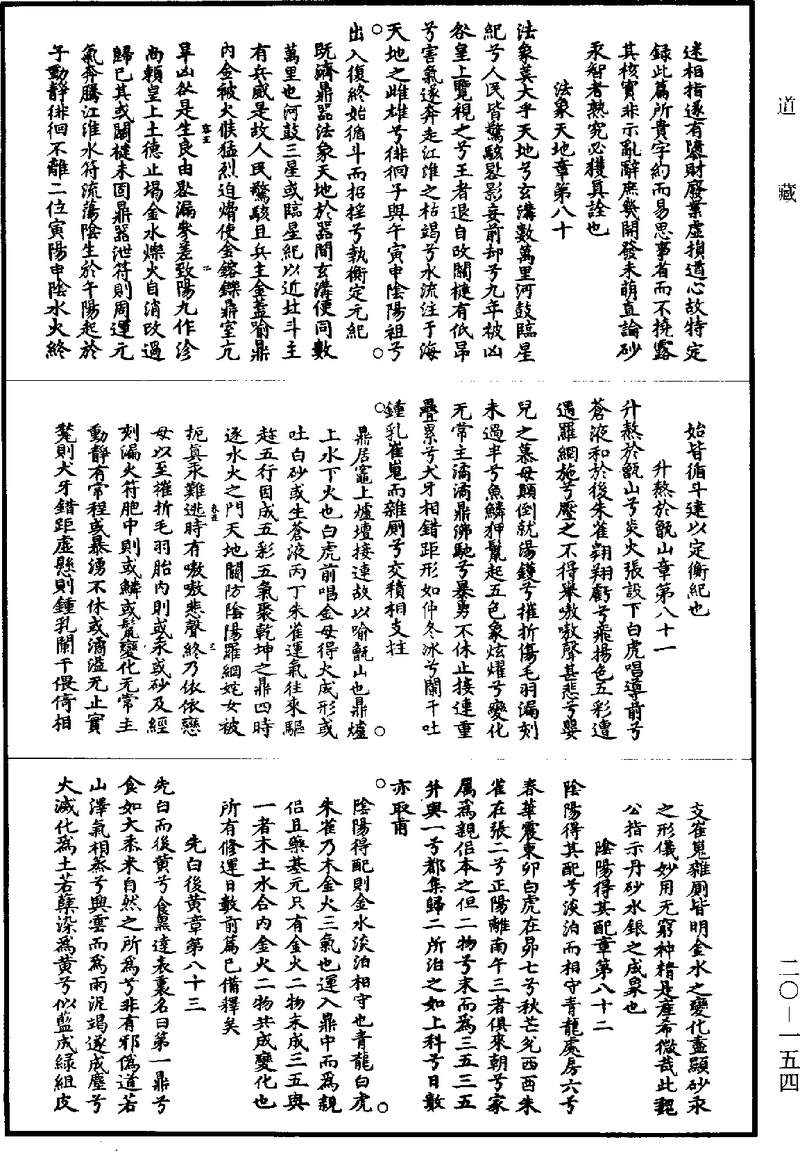 道藏
迷相指遂有隳財廢業虛損道心故特定
錄此篇所貴字約而易思事省而不撓露
其核實非示亂辭庶幾開發未萌直論砂
汞智者熟究必獲真詮也
法象天地章第八十
法象莫大乎天地兮玄溝數萬里河鼓臨星
紀兮人民皆驚駭晷影妄前却兮九年被凶
咎皇上覽視之兮王者退自改關楗有低昂
兮害氣遂奔走江淮之枯竭兮水流注于海
天地之雌雄兮徘徊子與午寅申陰陽祖兮
出入復終始循斗而招搖兮執衡定元紀
既濟鼎器法象天地於器間玄溝便同數
萬里也河鼓三星或臨星紀以近牡斗主
有兵威是故人民驚駭且兵主金蓋喻鼎
內金被火候猛烈迫熁使金鎔鑠鼎室亢
旱凶咎是生良由晷漏參差致陽九作沴
尚賴皇上土德止堨金水爍火自消改過
歸已其或關楗未固鼎器泄符則周運元
氣奔騰江淮水符流蕩陰生於午陽起於
子動靜徘徊不離二位寅陽申陰水火終
始皆循斗建以定衡紀也
升熬於甑山章第八十一
升熬於甑山兮炎火張設下白虎唱導前兮
蒼液和於後朱雀翱翔戲兮飛揚色五彩遭
遇羅網施兮壓之不得舉嗷嗷聲甚悲兮嬰
兒之慕母顛倒就湯鑊兮摧折傷毛羽漏刻
未過半兮魚鱗狎鬣起五色象炫耀兮變化
无常主潏潏鼎沸馳兮暴勇不休止接連重
疊累兮犬牙相錯距形如仲冬冰兮闌干吐
鍾乳崔嵬而雜廁兮交積相支拄
鼎居竈上爐壇接連故以喻甑山也鼎爐
上水下火也白虎前唱金母得火成形或
吐白砂或生蒼液丙丁朱雀運氣往來驅
趂五行因成五彩五氣聚乾坤之鼎四時
逐水火之門天地關防陰陽羅網姹女被
扼真汞難逃時有嗷嗷悲聲終乃依依戀
母以至摧折毛羽胎內則或汞或砂及經
刻漏火符胞中則或鱗或鬣變化无常主
動靜有常程或暴湧不休或潏溢无止實
凳則犬牙錯距虛懸則鍾乳闌干偎倚相
交崔嵬雜廁皆明金水之變化盡顯砂汞
之形儀妙用无窮神精是產希微哉此魏
公指示丹砂水銀之成象也
陰陽得其配章第八十二
陰陽得其配兮淡泊而相守青龍處房六兮
春華震東卯白虎在昴七兮秋芒兌西酉朱
雀在張二兮正陽離南午三者俱來朝兮家
屬為親侶本之但二物兮末而為三五三五
并與一兮都集歸二所治之如上科兮日數
亦取甫
陰陽得配則金水淡泊相守也青龍白虎
朱雀乃木金火三氣也運入鼎中而為親
侶且藥基元只有金火二物末成三五與
一者木土水合內金火二物共成變化也
所有修運日數前篇已備釋矣
先白後黃章第八十三
先白而後黃兮食黑達表裏名曰第一鼎兮
食如大黍米自然之所為兮非有邪偽道若
山澤氣相蒸兮興雲而為雨泥竭遂成塵兮
火滅化為土若蘗染為黃兮似藍成綠組皮
二〇—一五四